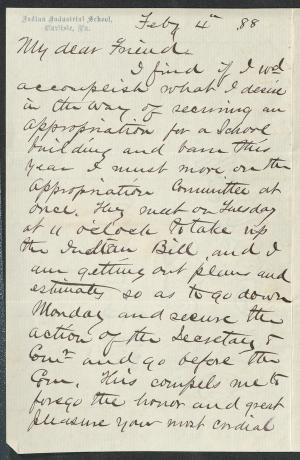 Indian Industrial School,
Carlisle, Pa.
Feby 4" 88
My dear Friend.
I find if I wd
accomplish what I desire
in the way of securing an
appropriation for a School
building and barn this
year I must move on the
appropriation Committee at
once. They meet on Tuesday
at 11 o'clock to take up
the Indian Bill, and I
am getting out plans and
estimates so as to go down
Monday and secure the
action of the Secretary &
Comr and go before the
Com. This compels me to
forego the honor and great
pleasure your most cordial